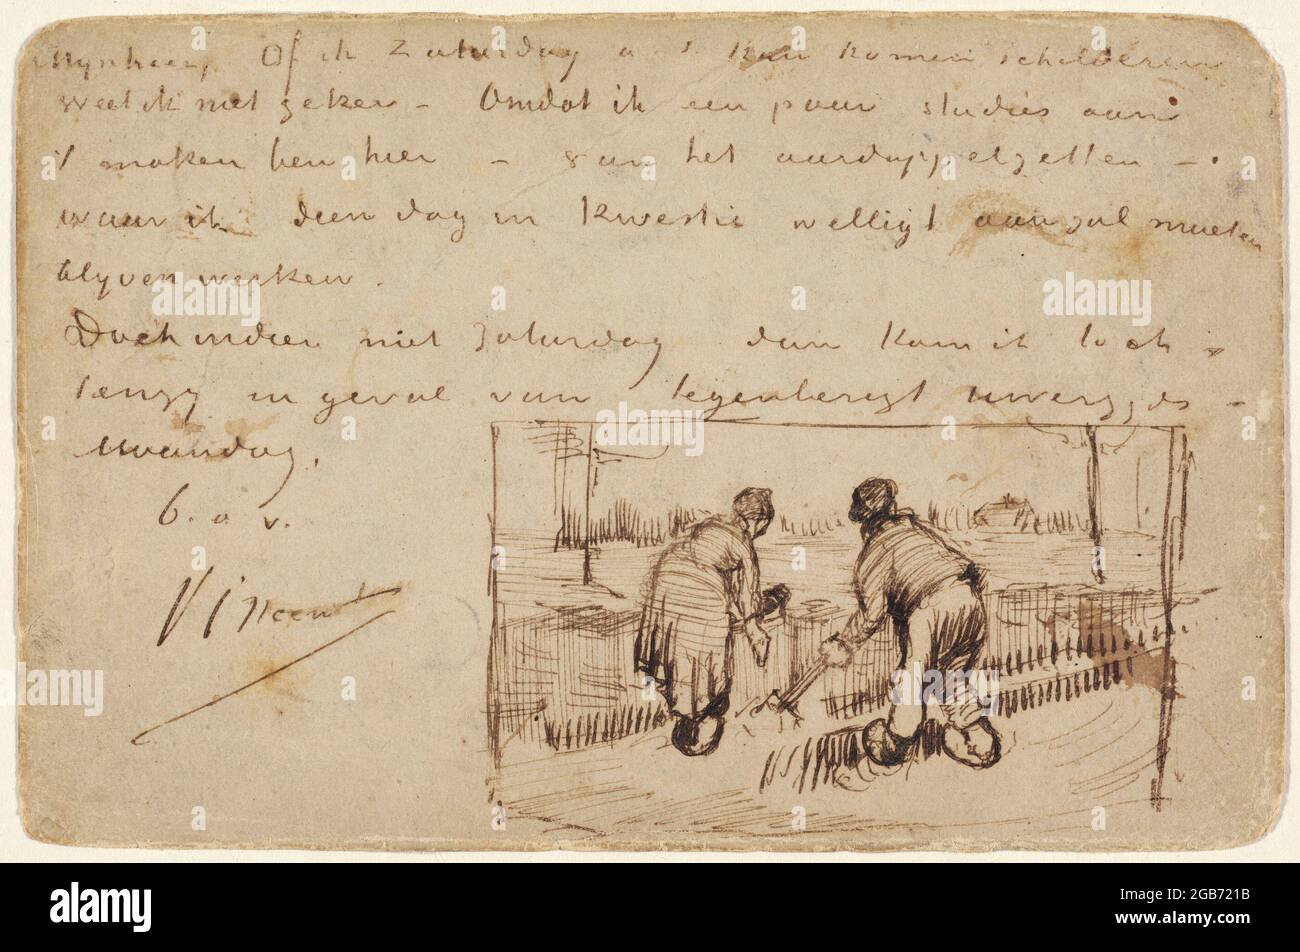 Mynheer, Of ik Zaturdag a s kan komen schilderen
weet ik niet zeker – Omdat ik een paar studies aan
't maken ben hier – van het aardappelzetten –.
waar ik dien dag in kwestie welligt aan zal moeten
blyven werken.
Doch indien niet Zaturdag dan kom ik toch –
tenzy in geval van tegenberigt uwerzyds –
Maandag.
b. a v.
Vincent
alamy
Image ID: 2GB721B
www.alamy.com